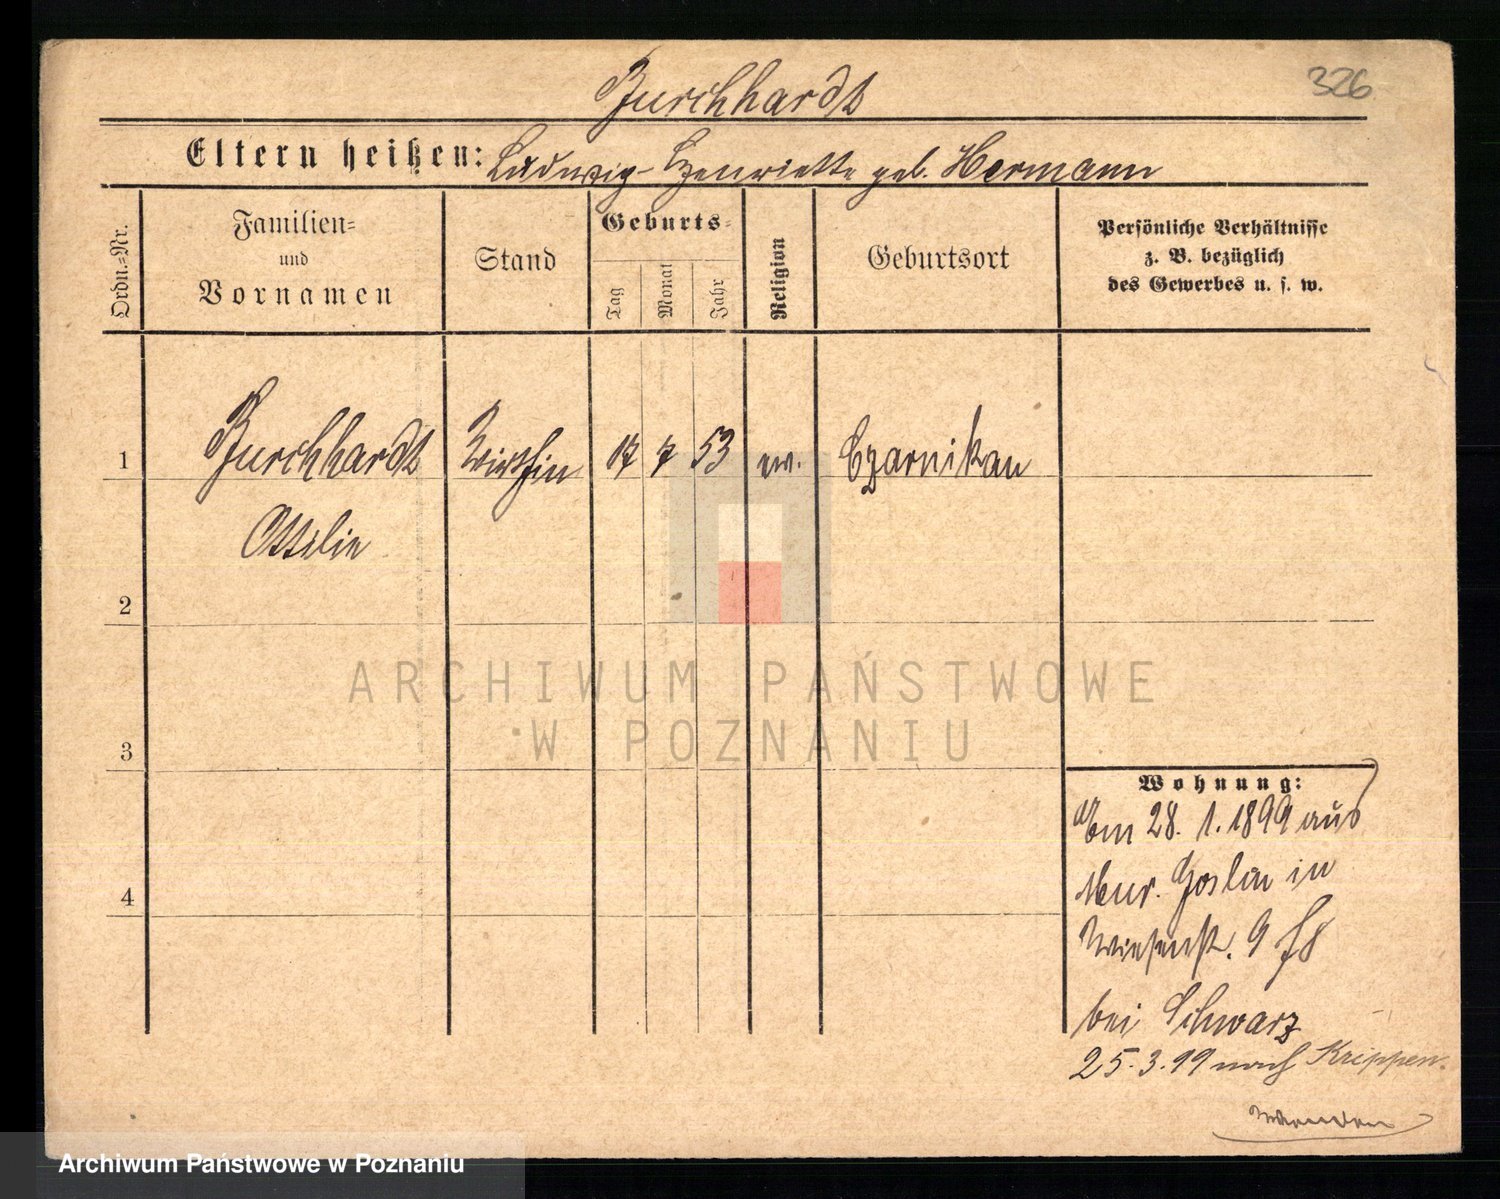 Burchhardt
326
Eltern heißen: Ludwig - Henriette geb. Hermann
Ordn.-Nr.
Familien-
und
Vornamen
Stand
Geburts-
Tag
Monat
Jahr
Religion
Geburtsort
Persönliche Verhältnisse
z. B. bezüglich
des Gewerbes u. s. w.
1
Burchhardt
Wirthin
17
7
53
ev.
Czarnikau
Ottilie
2
ARCHIWUM PAŃSTWOWE
W POZNANIU
3
Wohnung:
Am 28. 1. 1899 aus
Mur. Goslin in
Wiesenst. 9
bei Schwarz
25.3.99 nach Krippen
4
Archiwum Państwowe w Poznaniu